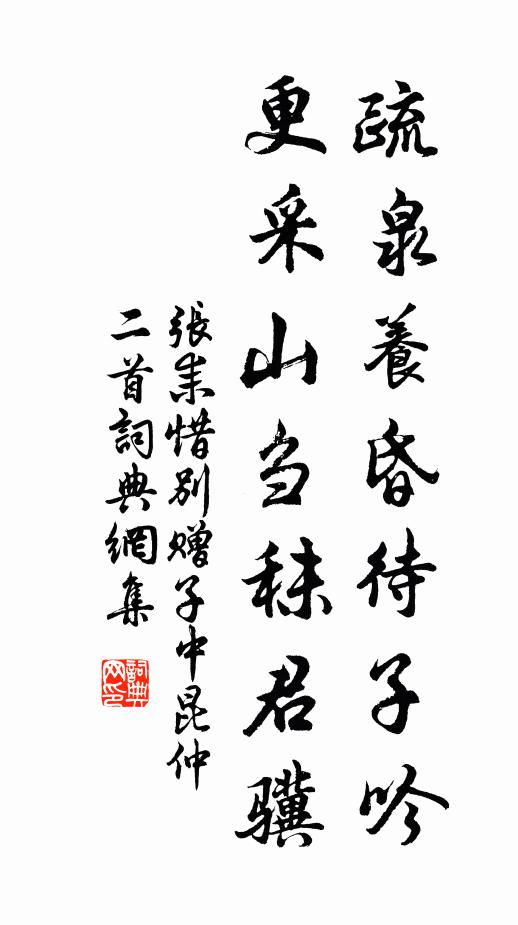 疏泉養昏待子吟
更采山刍秣君驥
張耒惜别赠子中昆仲
二首詞典網集
詞典网印